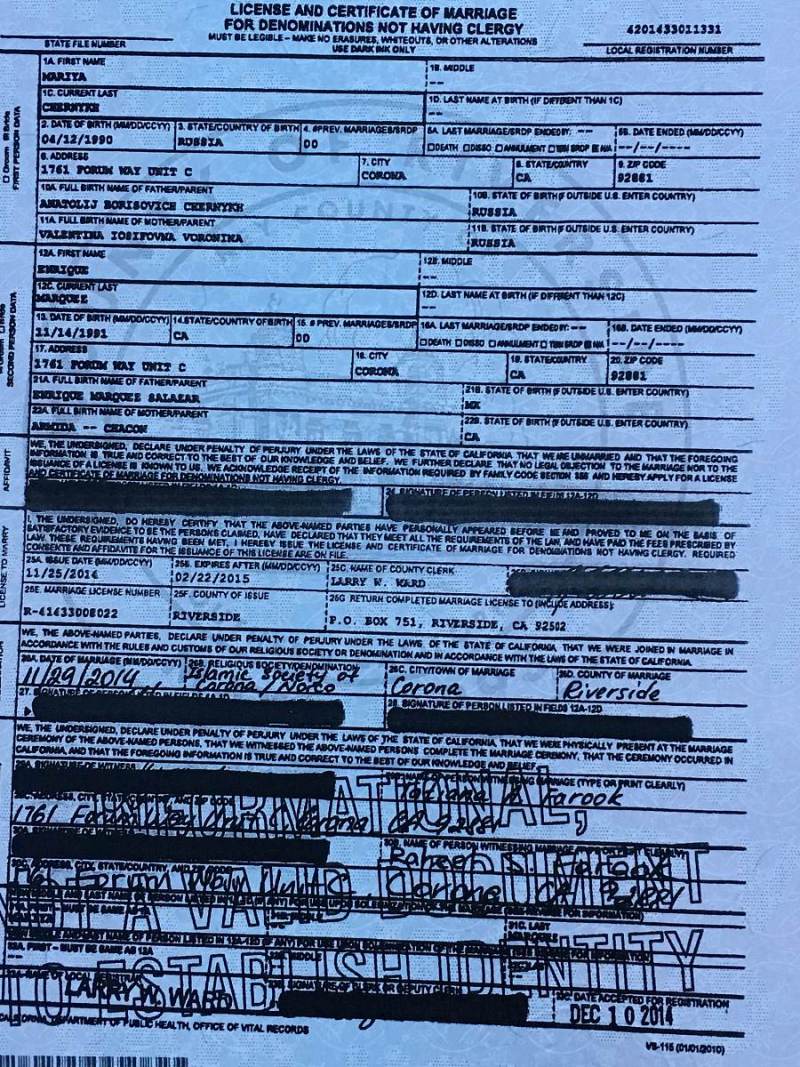 LICENSE AND CERTIFICATE OF MARRIAGE
FOR DENOMINATIONS NOT HAVING CLERGY
MUST BE LEGIBLE – MAKE NO ERASURES, WHITEOUTS, OR OTHER ALTERATIONS
USE DARK INK ONLY
4201433011331
STATE FILE NUMBER
LOCAL REGISTRATION NUMBER
1A. FIRST NAME
MARIYA
1B. MIDDLE
--
1C. CURRENT LAST
CHERNYKH
1D. LAST NAME AT BIRTH (IF DIFFERENT THAN 1C)
--
2. DATE OF BIRTH (MM/DD/CCYY)
04/12/1990
3. STATE/COUNTRY OF BIRTH
RUSSIA
4. #PREV. MARRIAGES/SRDP
00
5A. LAST MARRIAGE/SRDP ENDED BY: --
DEATH DISSO ANNULMENT TERM SRDP N/A
5B. DATE ENDED (MM/DD/CCYY)
--/--/----
6. ADDRESS
1761 FORUM WAY UNIT C
7. CITY
CORONA
8. STATE/COUNTRY
CA
9. ZIP CODE
92881
10A. FULL BIRTH NAME OF FATHER/PARENT
ANATOLIJ BORISOVICH CHERNYKH
10B. STATE OF BIRTH (IF OUTSIDE U.S. ENTER COUNTRY)
RUSSIA
11A. FULL BIRTH NAME OF MOTHER/PARENT
VALENTINA IOSIFOVNA VORONINA
11B. STATE OF BIRTH (IF OUTSIDE U.S. ENTER COUNTRY)
RUSSIA
Groom Bride
FIRST PERSON DATA
12A. FIRST NAME
ENRIQUE
12B. MIDDLE
--
12C. CURRENT LAST
MARQUEZ
12D. LAST NAME AT BIRTH (IF DIFFERENT THAN 12C)
--
13. DATE OF BIRTH (MM/DD/CCYY)
11/14/1991
14. STATE/COUNTRY OF BIRTH
CA
15. # PREV. MARRIAGES/SRDP
00
16A. LAST MARRIAGE/SRDP ENDED BY: --
DEATH DISSO ANNULMENT TERM SRDP N/A
16B. DATE ENDED (MM/DD/CCYY)
--/--/----
17. ADDRESS
1761 FORUM WAY UNIT C
18. CITY
CORONA
19. STATE/COUNTRY
CA
20. ZIP CODE
92881
21A. FULL BIRTH NAME OF FATHER/PARENT
ENRIQUE MARQUEZ SALAZAR
21B. STATE OF BIRTH (IF OUTSIDE U.S. ENTER COUNTRY)
MX
22A. FULL BIRTH NAME OF MOTHER/PARENT
ARMIDA -- CHACON
22B. STATE OF BIRTH (IF OUTSIDE U.S. ENTER COUNTRY)
CA
SECOND PERSON DATA
AFFIDAVIT
WE, THE UNDERSIGNED, DECLARE UNDER PENALTY OF PERJURY UNDER THE LAWS OF THE STATE OF CALIFORNIA THAT WE ARE UNMARRIED AND THAT THE FOREGOING
INFORMATION IS TRUE AND CORRECT TO THE BEST OF OUR KNOWLEDGE AND BELIEF. WE FURTHER DECLARE THAT NO LEGAL OBJECTION TO THE MARRIAGE NOR TO THE
ISSUANCE OF A LICENSE IS KNOWN TO US. WE ACKNOWLEDGE RECEIPT OF THE INFORMATION REQUIRED BY FAMILY CODE SECTION 358 AND HEREBY APPLY FOR A LICENSE
AND CERTIFICATE OF MARRIAGE FOR DENOMINATIONS NOT HAVING CLERGY.
24. SIGNATURE OF PERSON LISTED IN FIELDS 12A-12D
LICENSE TO MARRY
I, THE UNDERSIGNED, DO HEREBY CERTIFY THAT THE ABOVE-NAMED PARTIES HAVE PERSONALLY APPEARED BEFORE ME AND PROVED TO ME ON THE BASIS OF
SATISFACTORY EVIDENCE TO BE THE PERSONS CLAIMED, HAVE DECLARED THAT THEY MEET ALL THE REQUIREMENTS OF THE LAW, AND HAVE PAID THE FEES PRESCRIBED BY
LAW. THESE REQUIREMENTS HAVING BEEN MET, I HEREBY ISSUE THE LICENSE AND CERTIFICATE OF MARRIAGE FOR DENOMINATIONS NOT HAVING CLERGY. REQUIRED
CONSENTS AND AFFIDAVITS FOR THE ISSUANCE OF THIS LICENSE ARE ON FILE.
25A. ISSUE DATE (MM/DD/CCYY)
11/25/2014
25B. EXPIRES AFTER (MM/DD/CCYY)
02/22/2015
25C. NAME OF COUNTY CLERK
LARRY W. WARD
25E. MARRIAGE LICENSE NUMBER
R-41433008022
25F. COUNTY OF ISSUE
RIVERSIDE
25G RETURN COMPLETED MARRIAGE LICENSE TO (INCLUDE ADDRESS):
P.O. BOX 751, RIVERSIDE, CA 92502
WE, THE ABOVE-NAMED PARTIES, DECLARE UNDER PENALTY OF PERJURY UNDER THE LAWS OF THE STATE OF CALIFORNIA, THAT WE WERE JOINED IN MARRIAGE IN
ACCORDANCE WITH THE RULES AND CUSTOMS OF OUR RELIGIOUS SOCIETY OR DENOMINATION AND IN ACCORDANCE WITH THE LAWS OF THE STATE OF CALIFORNIA.
26A. DATE OF MARRIAGE (MM/DD/CCYY)
11/29/2014
26B. RELIGIOUS SOCIETY/DENOMINATION
Islamic Society of
Corona/Norco
26C. CITY/TOWN OF MARRIAGE
Corona
26D. COUNTY OF MARRIAGE
Riverside
27.
28. SIGNATURE OF PERSON LISTED IN FIELDS 12A-12D
WE, THE UNDERSIGNED, DECLARE UNDER PENALTY OF PERJURY UNDER THE LAWS OF THE STATE OF CALIFORNIA, THAT WE WERE PHYSICALLY PRESENT AT THE MARRIAGE
CEREMONY OF THE ABOVE-NAMED PERSONS, THAT WE WITNESSED THE ABOVE-NAMED PERSONS COMPLETE THE MARRIAGE CEREMONY, THAT THE CEREMONY OCCURRED IN
CALIFORNIA, AND THAT THE FOREGOING INFORMATION IS TRUE AND CORRECT TO THE BEST OF OUR KNOWLEDGE AND BELIEF.
Farook
1761 Forum Way Unit C Corona CA 92881
Farook
1761 Forum Way Unit C Corona CA 92881
INFORMATIONAL,
NOT A VALID DOCUMENT
TO ESTABLISH IDENTITY
31C. LAST
MARQUEZ
LARRY W. WARD
DATE ACCEPTED FOR REGISTRATION
DEC 10 2014
CALIFORNIA, DEPARTMENT OF PUBLIC HEALTH, OFFICE OF VITAL RECORDS
VS-115 (01/01/2010)